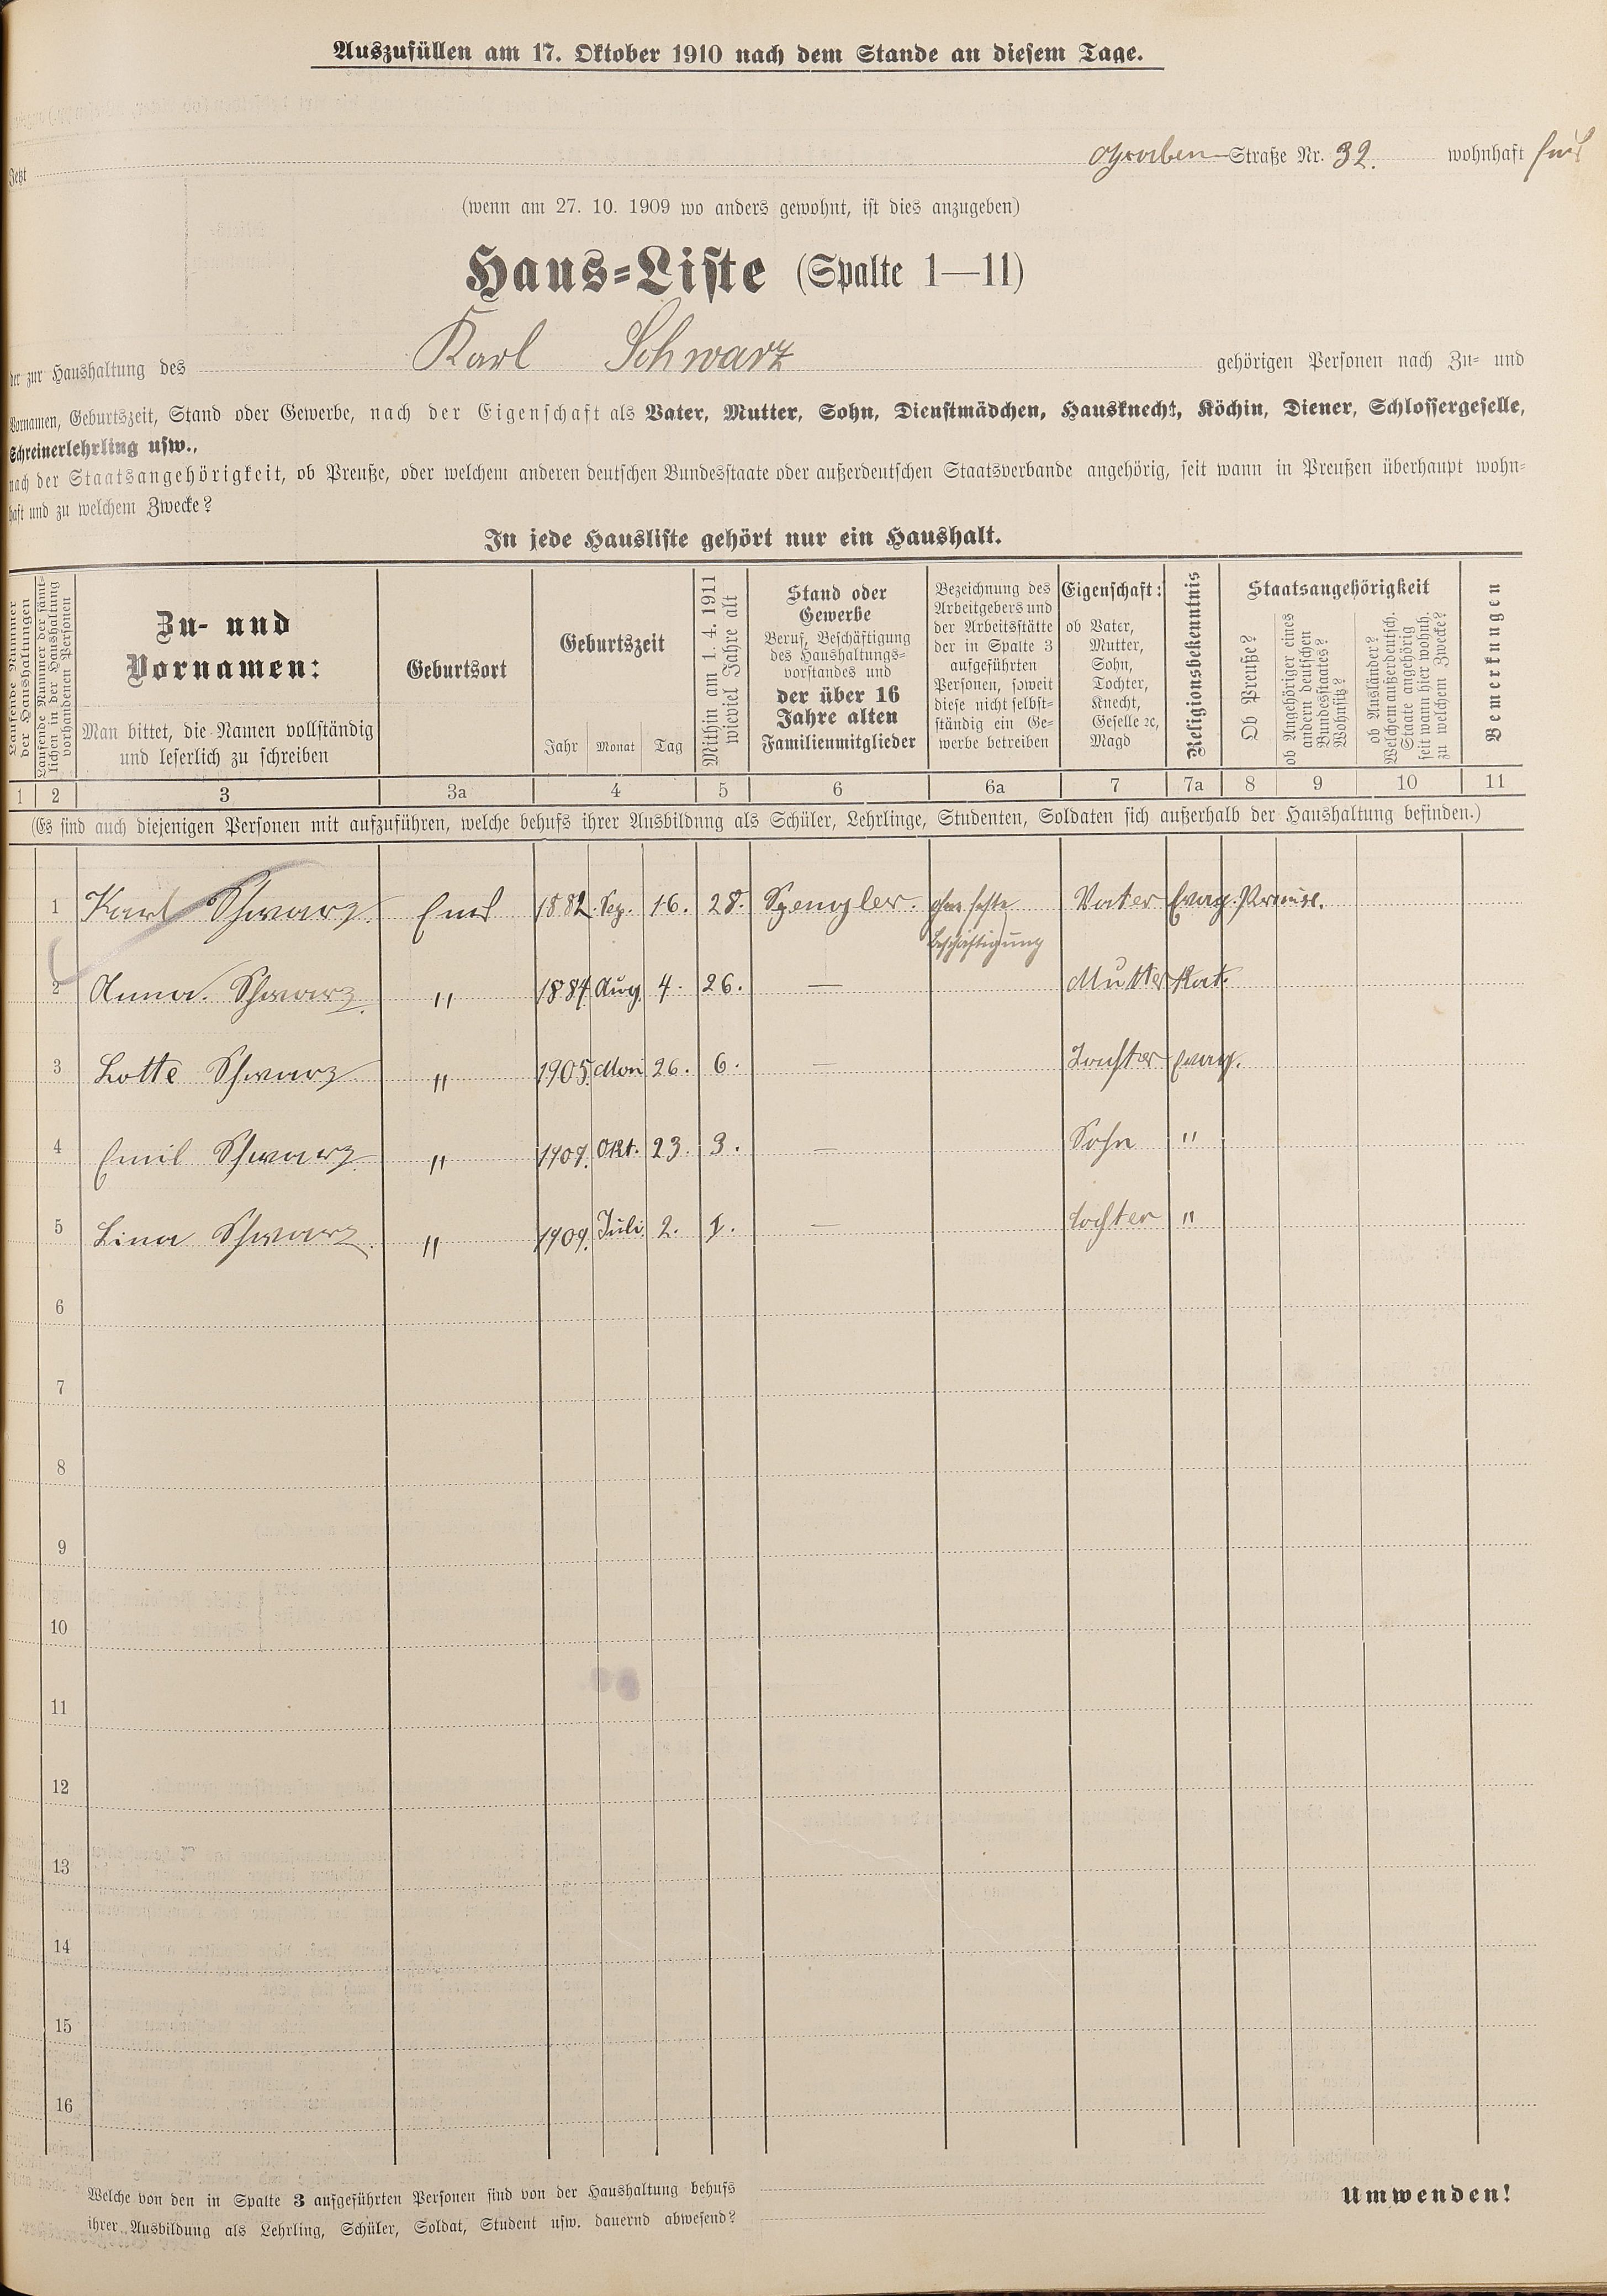 Auszufüllen am 17. Oktober 1910 nach dem Stande an diesem Tage.
Jetzt Graben-Straße Nr. 32. wohnhaft
(wenn am 27. 10. 1909 wo anders gewohnt, ist dies anzugeben)
Haus-Liste (Spalte 1—11)
der zur Haushaltung des Karl Schwarz gehörigen Personen nach Zu- und
Vornamen, Geburtszeit, Stand oder Gewerbe, nach der Eigenschaft als Vater, Mutter, Sohn, Dienstmädchen, Hausknecht, Köchin, Diener, Schlossergeselle,
Schreinerlehrling usw.,
nach der Staatsangehörigkeit, ob Preuße, oder welchem anderen deutschen Bundesstaate oder außerdeutschen Staatsverbande angehörig, seit wann in Preußen überhaupt wohn-
haft und zu welchem Zwecke?
In jede Hausliste gehört nur ein Haushalt.
Laufende Nummer
der Haushaltungen
Laufende Nummer der sämt-
lichen in der Haushaltung
vorhandenen Personen
Zu- und
Vornamen:
Man bittet, die Namen vollständig
und leserlich zu schreiben
Geburtsort
Geburtszeit
Jahr Monat Tag
Mithin am 1. 4. 1911
wieviel Jahre alt
Stand oder
Gewerbe
Beruf, Beschäftigung
des Haushaltungs-
vorstandes und
der über 16
Jahre alten
Familienmitglieder
Bezeichnung des
Arbeitgebers und
der Arbeitsstätte
der in Spalte 3
aufgeführten
Personen, soweit
diese nicht selbst-
ständig ein Ge-
werbe betreiben
Eigenschaft:
ob Vater,
Mutter,
Sohn,
Tochter,
Knecht,
Geselle ꝛc,
Magd
Religionsbekenntnis
Staatsangehörigkeit
Ob Preuße?
ob Angehöriger eines
andern deutschen
Bundesstaates?
Wohnsitz?
ob Ausländer?
Welchem außerdeutsch.
Staate angehörig
seit wann hier wohnh.
zu welchem Zwecke?
Bemerkungen
1 2 3 3a 4 5 6 6a 7 7a 8 9 10 11
(Es sind auch diejenigen Personen mit aufzuführen, welche behufs ihrer Ausbildung als Schüler, Lehrlinge, Studenten, Soldaten sich außerhalb der Haushaltung befinden.)
1 Karl Schwarz. Ems 1882. Sep. 16. 28. Spengler. ohne feste Vater Evag. Preuise.
Beschäftigung
2 Anna. Schwarz. " 1884. Aug. 4. 26. — Mutter Kat.
3 Lotte Schwarz " 1905. Mai 26. 6. — Tochter evag.
4 Emil Schwarz. " 1907. Okt. 23. 3. — Sohn "
5 Lina Schwarz. " 1909. Juli 2. 1. — tochter "
6
7
8
9
10
11
12
13
14
15
16
Welche von den in Spalte 3 aufgeführten Personen sind von der Haushaltung behufs
ihrer Ausbildung als Lehrling, Schüler, Soldat, Student usw. dauernd abwesend?
Umwenden!